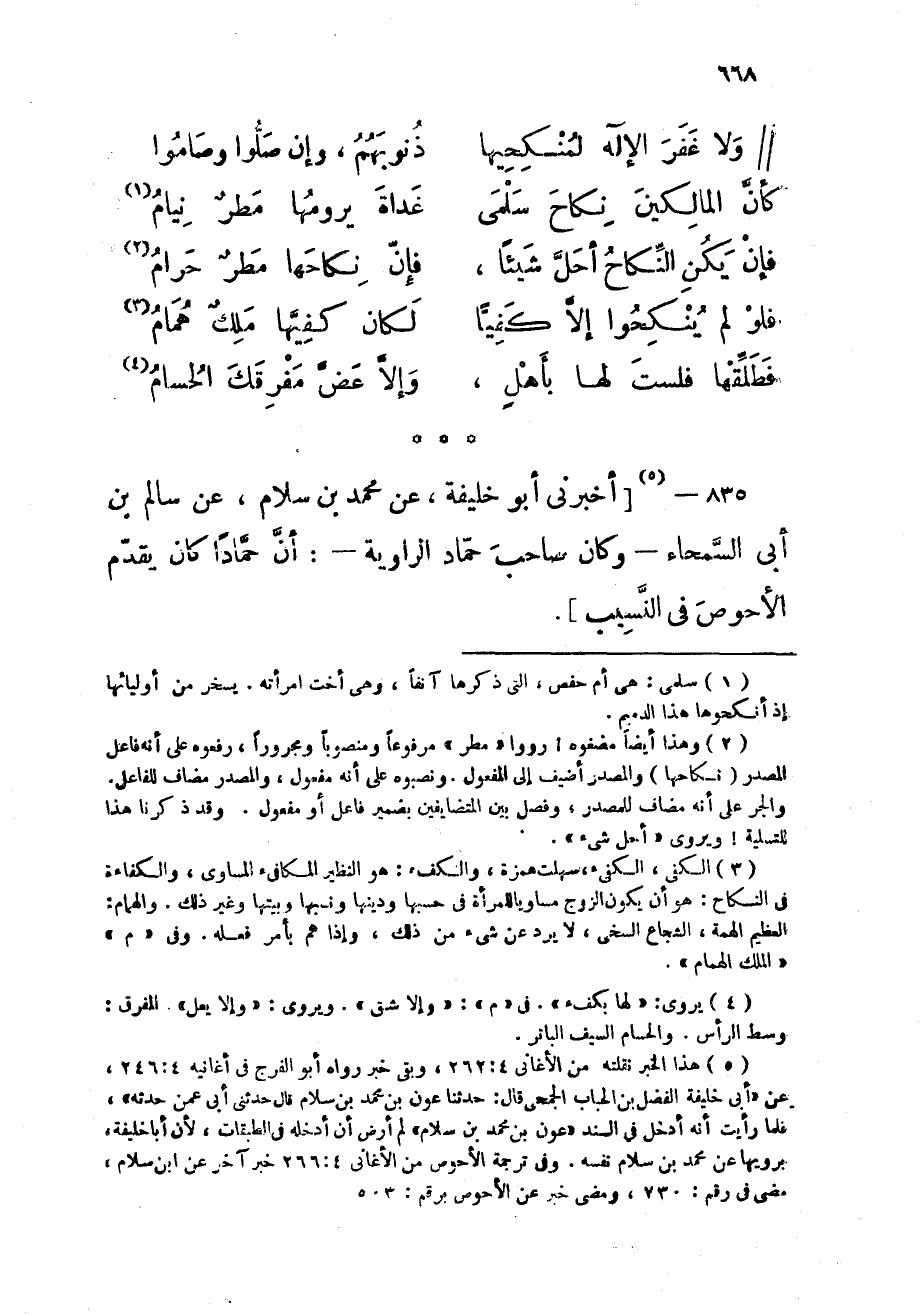 ٦٦٨
// وَلا غَفَرَ الإلَه لمُنْكِحِيها ذُنوبَهُمُ ، وإن صَلُّوا وصَامُوا
كأنَّ المالِكينَ نِكاحَ سَلْمَى غَداةَ يرومُها مَطرٌ نِيامُ (١)
فإنْ يَكُنِ النِّكاحُ أحَلَّ شَيئاً ، فإنّ نِكاحَها مطرٌ حَرامُ (٢)
فلوْ لم يُنْكِحُوا إلاَّ كَفِيًّا لَكان كَفِيَّها مَلِكٌ هُمَامُ (٣)
فَطَلِّقْها فلستَ لها بأَهْلٍ ، وَإلاَّ عَضَّ مَفْرِقَكَ الحُسامُ (٤)
* * *
٨٣٥ — (٥) [ أخبرنى أبو خليفة ، عن محمد بن سلام ، عن سالم بن
أبى السَّمحاء — وكان صاحبَ حمّاد الراوية — : أنَّ حمَّادًا كان يقدّم
الأحوصَ فى النَّسِيب ] .
( ١ ) سلمى : هى أم حفص ، التى ذكرها آنفاً ، وهى أخت امرأته . يسخر من أوليائها
إذ أنكحوها هذا الدميم .
( ٢ ) وهذا أيضاً مضفوه ! رووا « مطر » مرفوعاً ومنصوباً ومجروراً ، رفعوه على أنه فاعل
المصدر ( نكاحها ) والمصدر أضيف إلى المفعول . ونصبوه على أنه مفعول ، والمصدر مضاف للفاعل.
والجر على أنه مضاف للمصدر ، وفصل بين المتضايفين بضمير فاعل أو مفعول . وقد ذكرنا هذا
للتسلية ! ويروى « أحل شىء » .
( ٣ ) الكفى ، الكفىء ، سهلت همزة ، والكفء : هو النظير المكافىء المساوى ، والكفاءة
فى النكاح : هو أن يكون الزوج مساويا للمرأة فى حسبها ودينها ونسبها وبيتها وغير ذلك . والهمام:
العظيم الهمة ، الشجاع السخى ، لا يرد عن شىء من ذلك ، وإذا هم بأمر فعله . وفى « م »
« الملك الهمام » .
( ٤ ) يروى: « لها بكفء » . فى « م » : « وإلا شق » . ويروى : « وإلا يعل» . المفرق :
وسط الرأس . والحسام السيف الباتر .
( ٥ ) هذا الخبر نقلته من الأغانى ٤ : ٢٦٢ ، وبقى خبر رواه أبو الفرج فى أغانيه ٤ : ٢٤٦ ،
عن «أبى خليفة الفضل بن الحباب الجمحى قال: حدثنا عون بن محمد بن سلام قال حدثنى أبى عمن حدثه» ،
فلما رأيت أنه أدخل فى السند «عون بن محمد بن سلام» لم أرض أن أدخله فى الطبقات ، لأن أبا خليفة،
يرويها عن محمد بن سلام نفسه . وفى ترجمة الأحوص من الأغانى ٤ : ٢٦٦ خبر آخر عن ابن سلام ،
مضى فى رقم : ٧٣٠ ، ومضى خبر عن الأحوص برقم : ٥٠٣